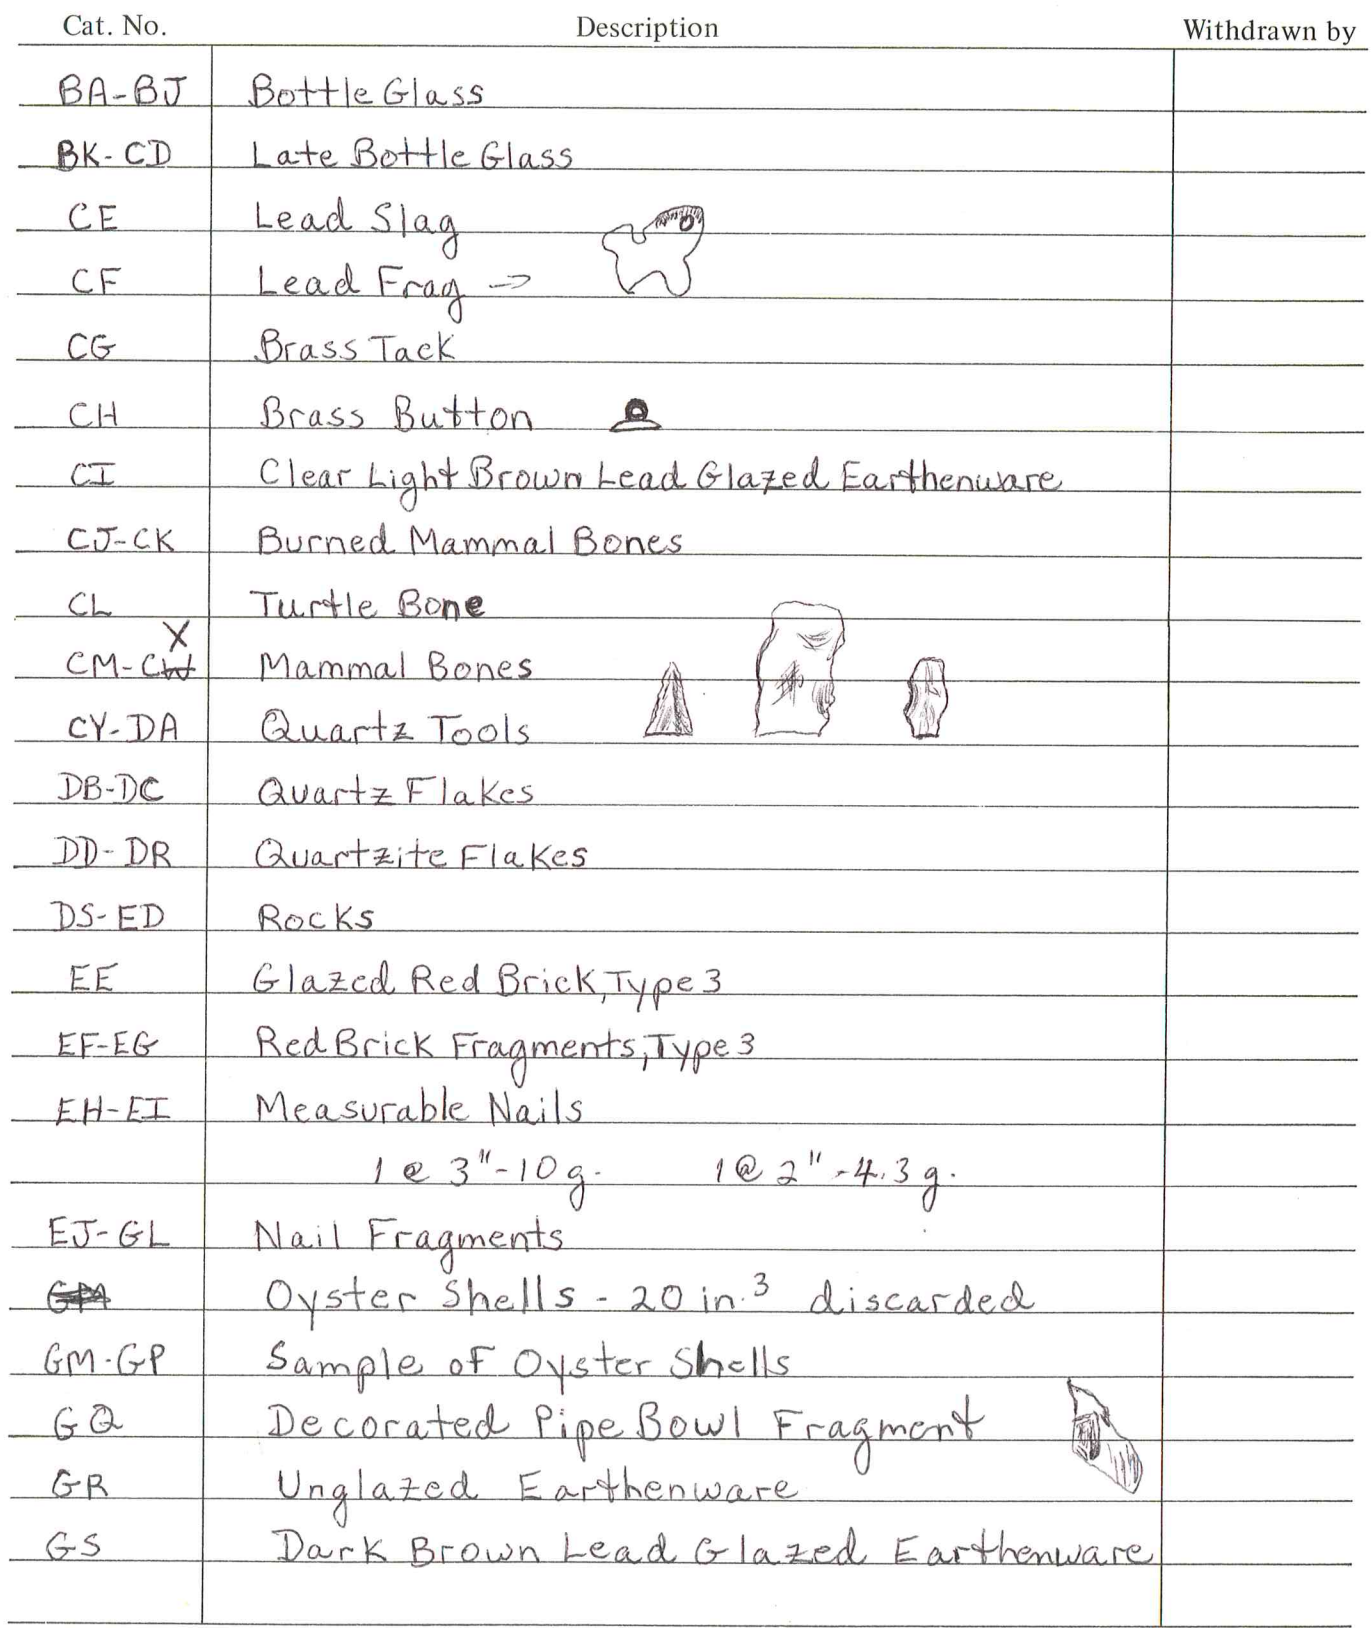 Cat. No. Description Withdrawn by
BA-BJ Bottle Glass
BK-CD Late Bottle Glass
CE Lead Slag
CF Lead Frag →
CG Brass Tack
CH Brass Button
CI Clear Light Brown Lead Glazed Earthenware
CJ-CK Burned Mammal Bones
CL Turtle Bone
X
CM-CW Mammal Bones
CY-DA Quartz Tools
DB-DC Quartz Flakes
DD-DR Quartzite Flakes
DS-ED Rocks
EE Glazed Red Brick, Type 3
EF-EG Red Brick Fragments, Type 3
EH-EI Measurable Nails
1 @ 3"-10g. 1 @ 2"-4.3g.
EJ-GL Nail Fragments
GM Oyster Shells - 20 in.³ discarded
GM-GP Sample of Oyster Shells
GQ Decorated Pipe Bowl Fragment
GR Unglazed Earthenware
GS Dark Brown Lead Glazed Earthenware